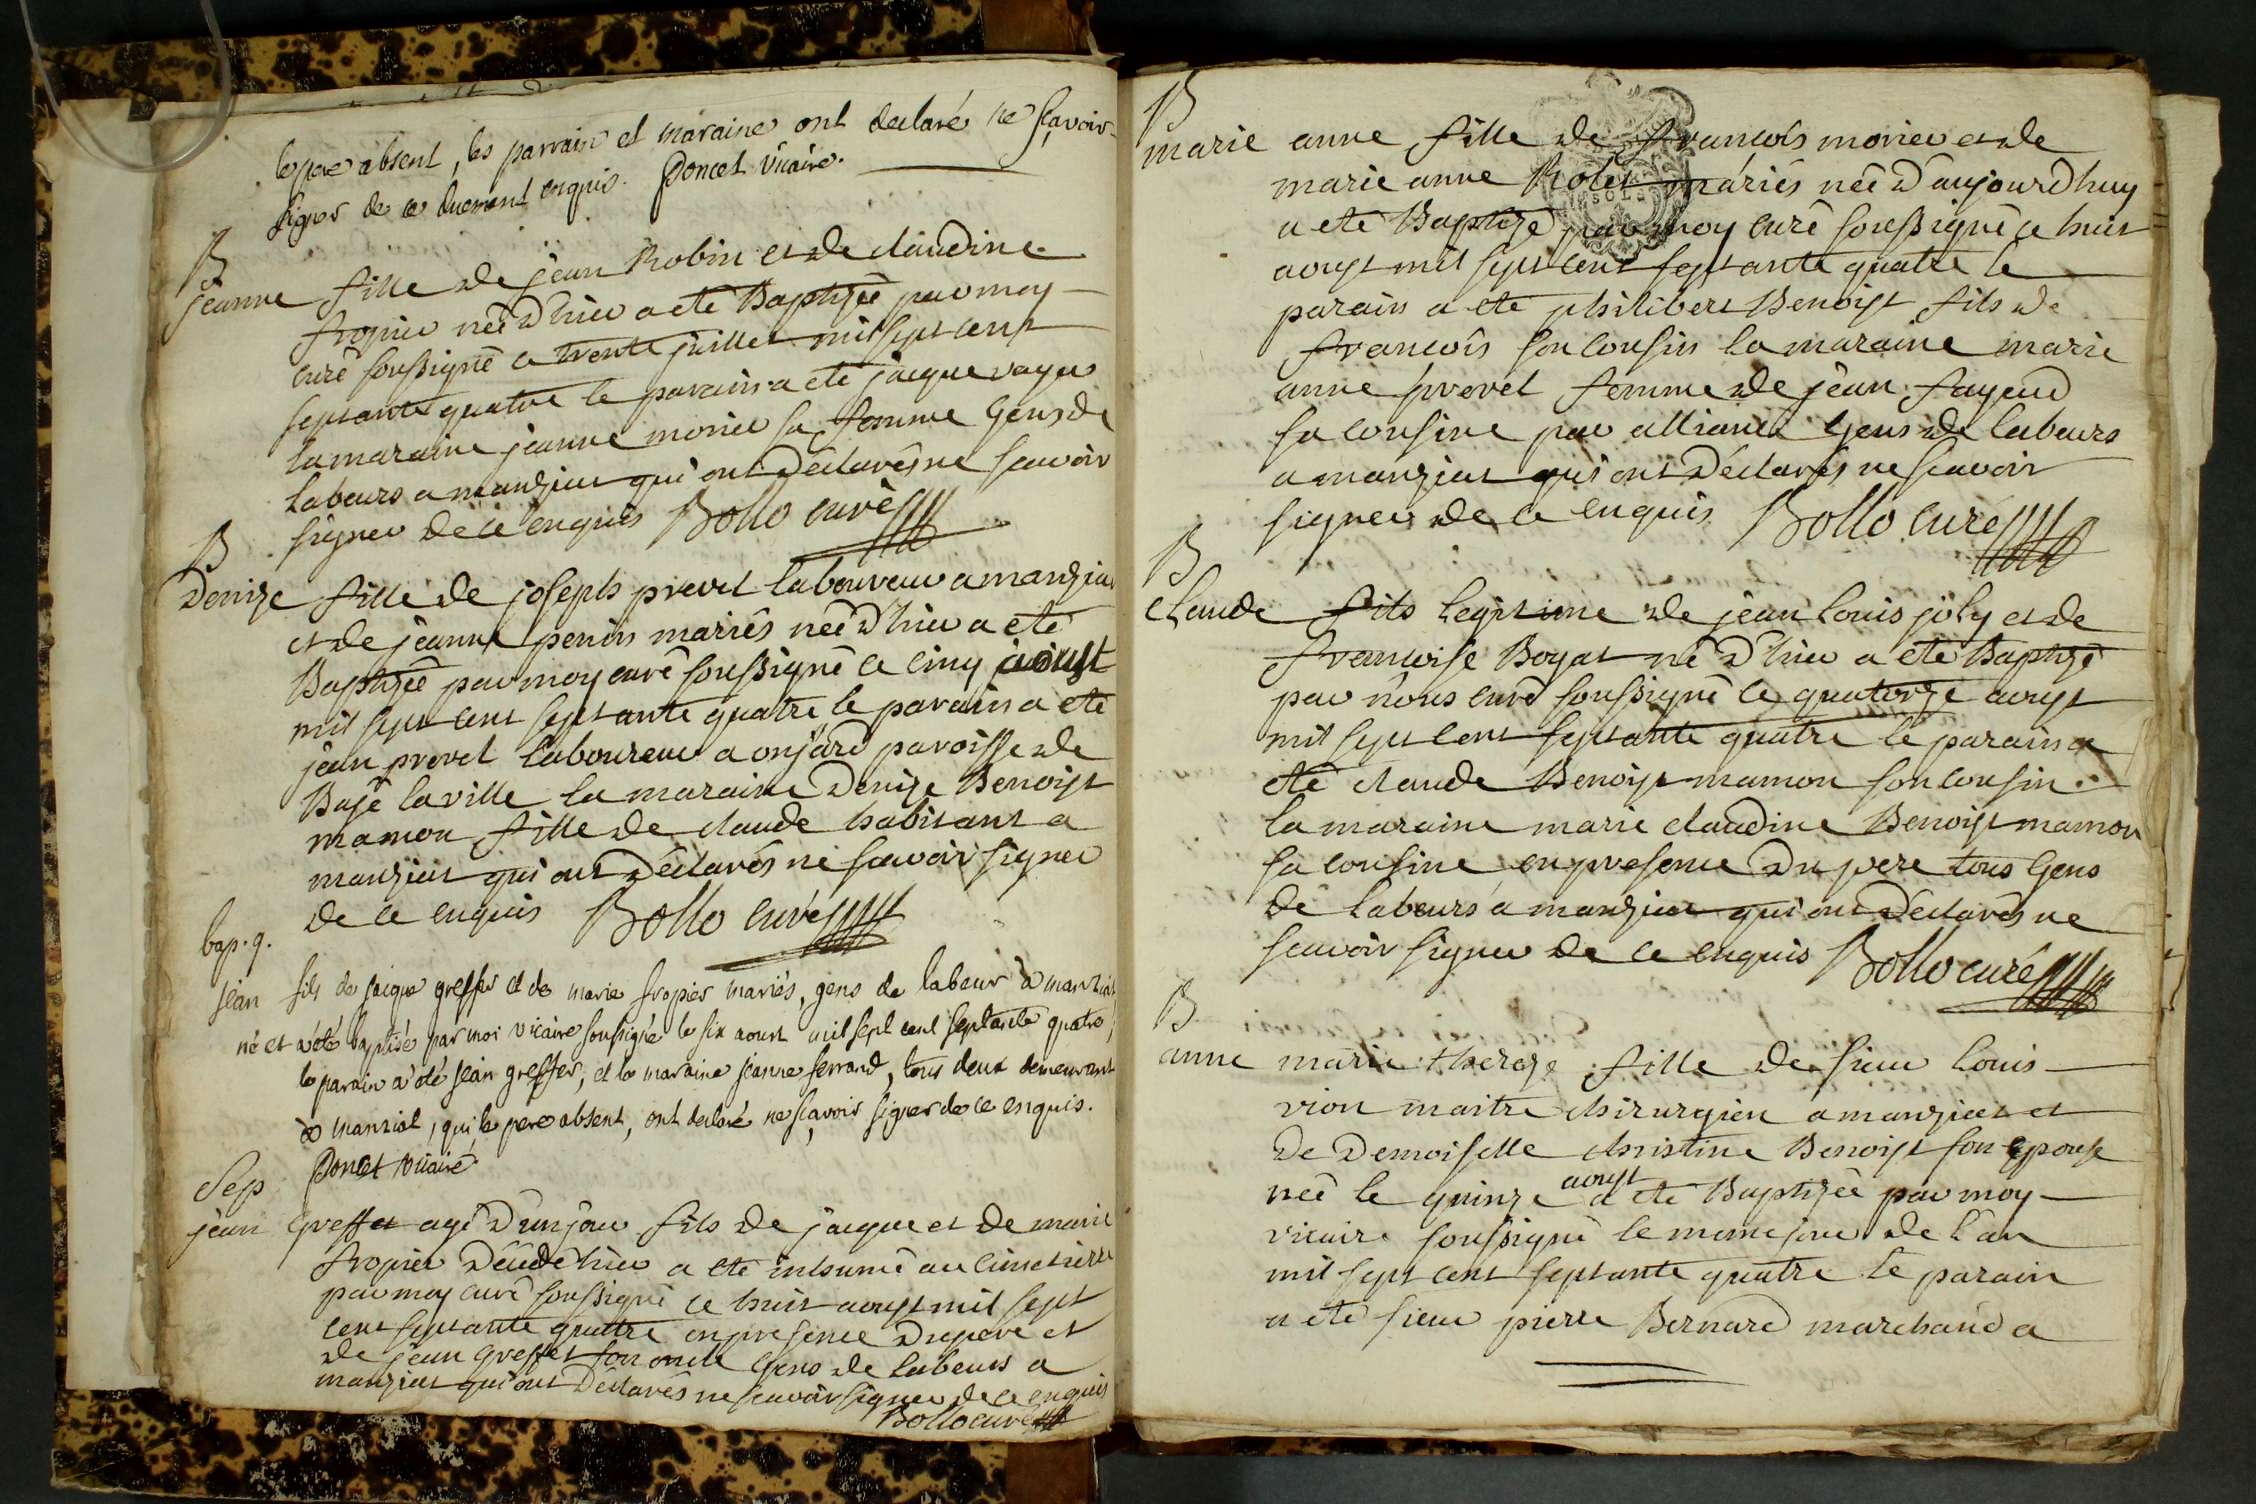 le pere absent, les parrain et maraine ont declaré ne sçavoir
signer de ce duement enquis. Poncet vicaire.
B
jeanne fille de jean Robin et de claudine
fropier née d'hier a eté Baptizée par moy
curé soussigné ce trente juillet mil sept cent
septante quatre le parain a eté jacque
la maraine jeanne morier sa femme gens de
labeurs a manziat qui ont déclarés ne scavoir
signer de ce enquis Bollo curé
B
Denize fille de joseph prevel laboureur a manziat
et de jeanne penin mariés née d'hier a eté
Baptizée par moy curé soussigné ce cinq aoust
mil sept cent septante quatre le parain a eté
jean prevel laboureur a onjard paroisse de
Bagé la ville la maraine Denize Benoist
mamon fille de claude habitant a
manziat qui ont déclarés ne scavoir signer
de ce enquis Bollo curé
bap. g.
jean fils de jacque greffet et de marie fropier mariés, gens de labeur à manziat
né et a été baptisé par moi vicaire soussigné le six aoust mil sept cent septante quatre,
le parain a été jean greffet, et la maraine jeanne ferrand, tous deux demeurant
à manziat, qui, le pere absent, ont declaré ne sçavoir signer de ce enquis.
Poncet vicaire
Sep
jean greffet agé d'un jour fils de jacque et de marie
fropier décédé hier a eté inhumé au cimetierre
par moy curé soussigné ce huit aoust mil sept
cent septante quattre en presence du pere et
de jean greffet son oncle gens de labeurs a
manziat qui ont déclarés ne scavoir signer de ce enquis
Bollo curé
B
marie anne fille de francois morier et de
marie anne Rolet mariés née d'aujourdhuy
a eté Baptizé par moy curé soussigné ce huit
aoust mil sept cent septante quatre le
parain a eté philibert Benoist fils de
francois son cousin la maraine marie
anne prevel femme de jean fayard
sa cousine par alliance gens de labeurs
a manziat qui ont déclarés ne scavoir
signer de ce enquis Bollo curé
B
claude fils legitime de jean louis joly et de
francoise Boyat né d'hier a eté Baptizé
par nous curé soussigné ce quatorze aoust
mil sept cent septante quatre le parain a
eté claude Benoist mamon son cousin
la maraine marie claudine Benoist mamon
sa cousine en presence du pere tous gens
de labeurs a manziat qui ont déclarés ne
scavoir signer de ce enquis Bollo curé
B
anne marie thereze fille de sieur louis
vion maitre chirurgien a manziat et
de demoiselle christine Benoist son epouse
née le quinze aoust a eté Baptizée par moy
vicaire soussigné le meme jour de l'an
mil sept cent septante quatre le parain
a eté sieur pierre Bernard marchand a